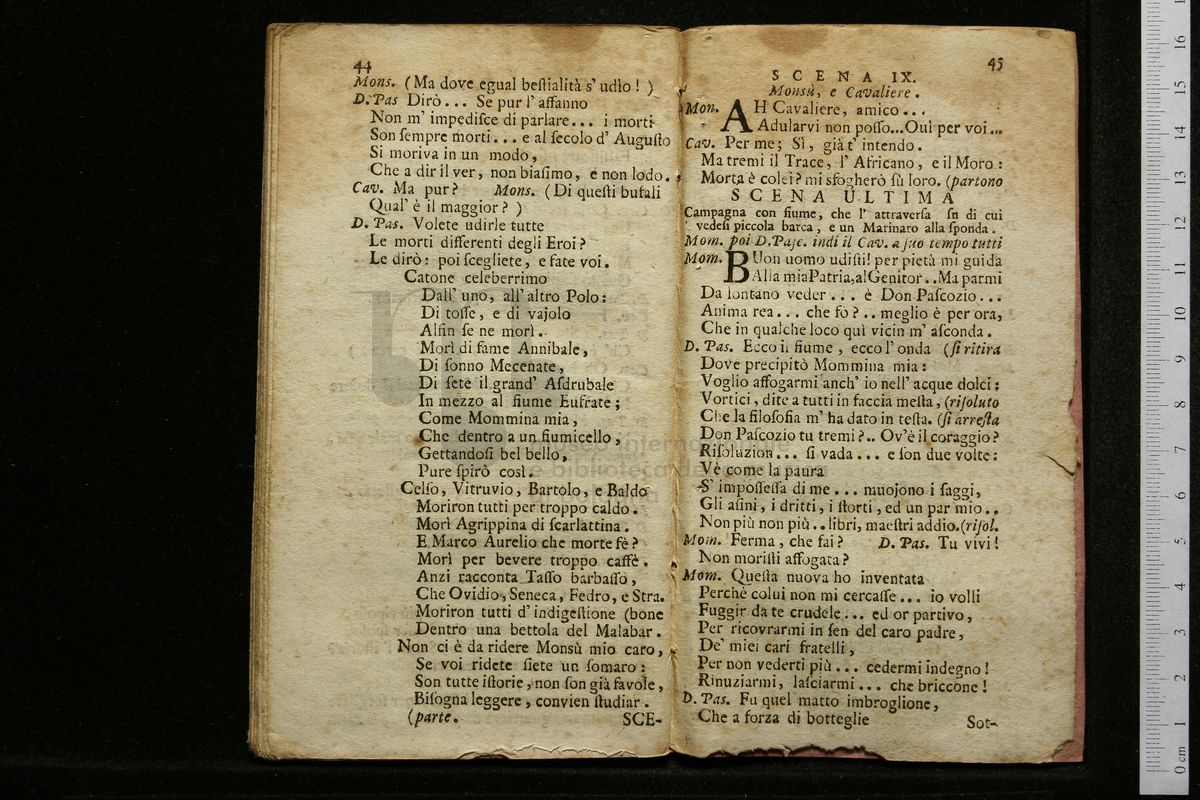 44
Mons. (Ma dove egual beſtialità s' udìo! )
D. Pas Dirò... Se pur l' affanno
Non m' impediſce di parlare... i morti
Son ſempre morti... e al ſecolo d' Auguſto
Si moriva in un modo,
Che a dir il ver, non biaſimo, e non lodo.
Cav. Ma pur? Mons. (Di queſti bufali
Qual' è il maggior? )
D. Pas. Volete udirle tutte
Le morti differenti degli Eroi?
Le dirò: poi ſcegliete, e fate voi.
Catone celeberrimo
Dall' uno, all' altro Polo:
Di toſſe, e di vajolo
Alfin ſe ne morì.
Morì di fame Annibale,
Di ſonno Mecenate,
Di ſete il grand' Aſdrubale
In mezzo al fiume Eufrate;
Come Mommina mia,
Che dentro a un fiumicello,
Gettandoſi bel bello,
Pure ſpirò così.
Celſo, Vitruvio, Bartolo, e Baldo
Moriron tutti per troppo caldo.
Morì Agrippina di ſcarlattina.
E Marco Aurelio che morte fè?
Morì per bevere troppo caffè.
Anzi racconta Taſſo barbaſſo,
Che Ovidio, Seneca, Fedro, e Stra.
Moriron tutti d' indigeſtione (bone
Dentro una bettola del Malabar.
Non ci è da ridere Monsù mio caro,
Se voi ridete ſiete un ſomaro:
Son tutte iſtorie, non ſon già favole,
Biſogna leggere, convien ſtudiar.
(parte. SCE-
45
SCENA IX.
Monsù, e Cavaliere.
Mon. AH Cavaliere, amico...
Adularvi non poſſo...Ouì per voi...
Cav. Per me; Sì, già t' intendo.
Ma tremi il Trace, l' Africano, e il Moro:
Morta è colei? mi sfogherò ſù loro. (partono
SCENA ULTIMA
Campagna con fiume, che l' attraverſa ſu di cui
vedeſi piccola barca, e un Marinaro alla ſponda.
Mom. poi D. Paſc. indi il Cav. a ſuo tempo tutti
Mom. BUon uomo udiſti! per pietà mi guida
Alla mia Patria, al Genitor..Ma parmi
Da lontano veder... è Don Paſcozio...
Anima rea... che fo?.. meglio è per ora,
Che in qualche loco quì vicin m' aſconda.
D. Pas. Ecco il fiume, ecco l' onda (ſi ritira
Dove precipitò Mommina mia:
Voglio affogarmi anch' io nell' acque dolci;
Vortici, dite a tutti in faccia meſta, (riſoluto
Che la filoſofia m' ha dato in teſta. (ſi arreſta
Don Paſcozio tu tremi?.. Ov'è il coraggio?
Riſoluzion... ſi vada... e ſon due volte:
Vè come la paura
S' impoſſeſſa di me... muojono i ſaggi,
Gli aſini, i dritti, i ſtorti, ed un par mio..
Non più non più..libri, maeſtri addio.(riſol.
Mom. Ferma, che fai? D. Pas. Tu vivi!
Non moriſti affogata?
Mom. Queſta nuova ho inventata
Perchè colui non mi cercaſſe... io volli
Fuggir da te crudele... ed or partivo,
Per ricovrarmi in ſen del caro padre,
De' miei cari fratelli,
Per non vederti più... cedermi indegno!
Rinuziarmi, laſciarmi... che briccone!
D. Pas. Fu quel matto imbroglione,
Che a forza di botteglie Sot-